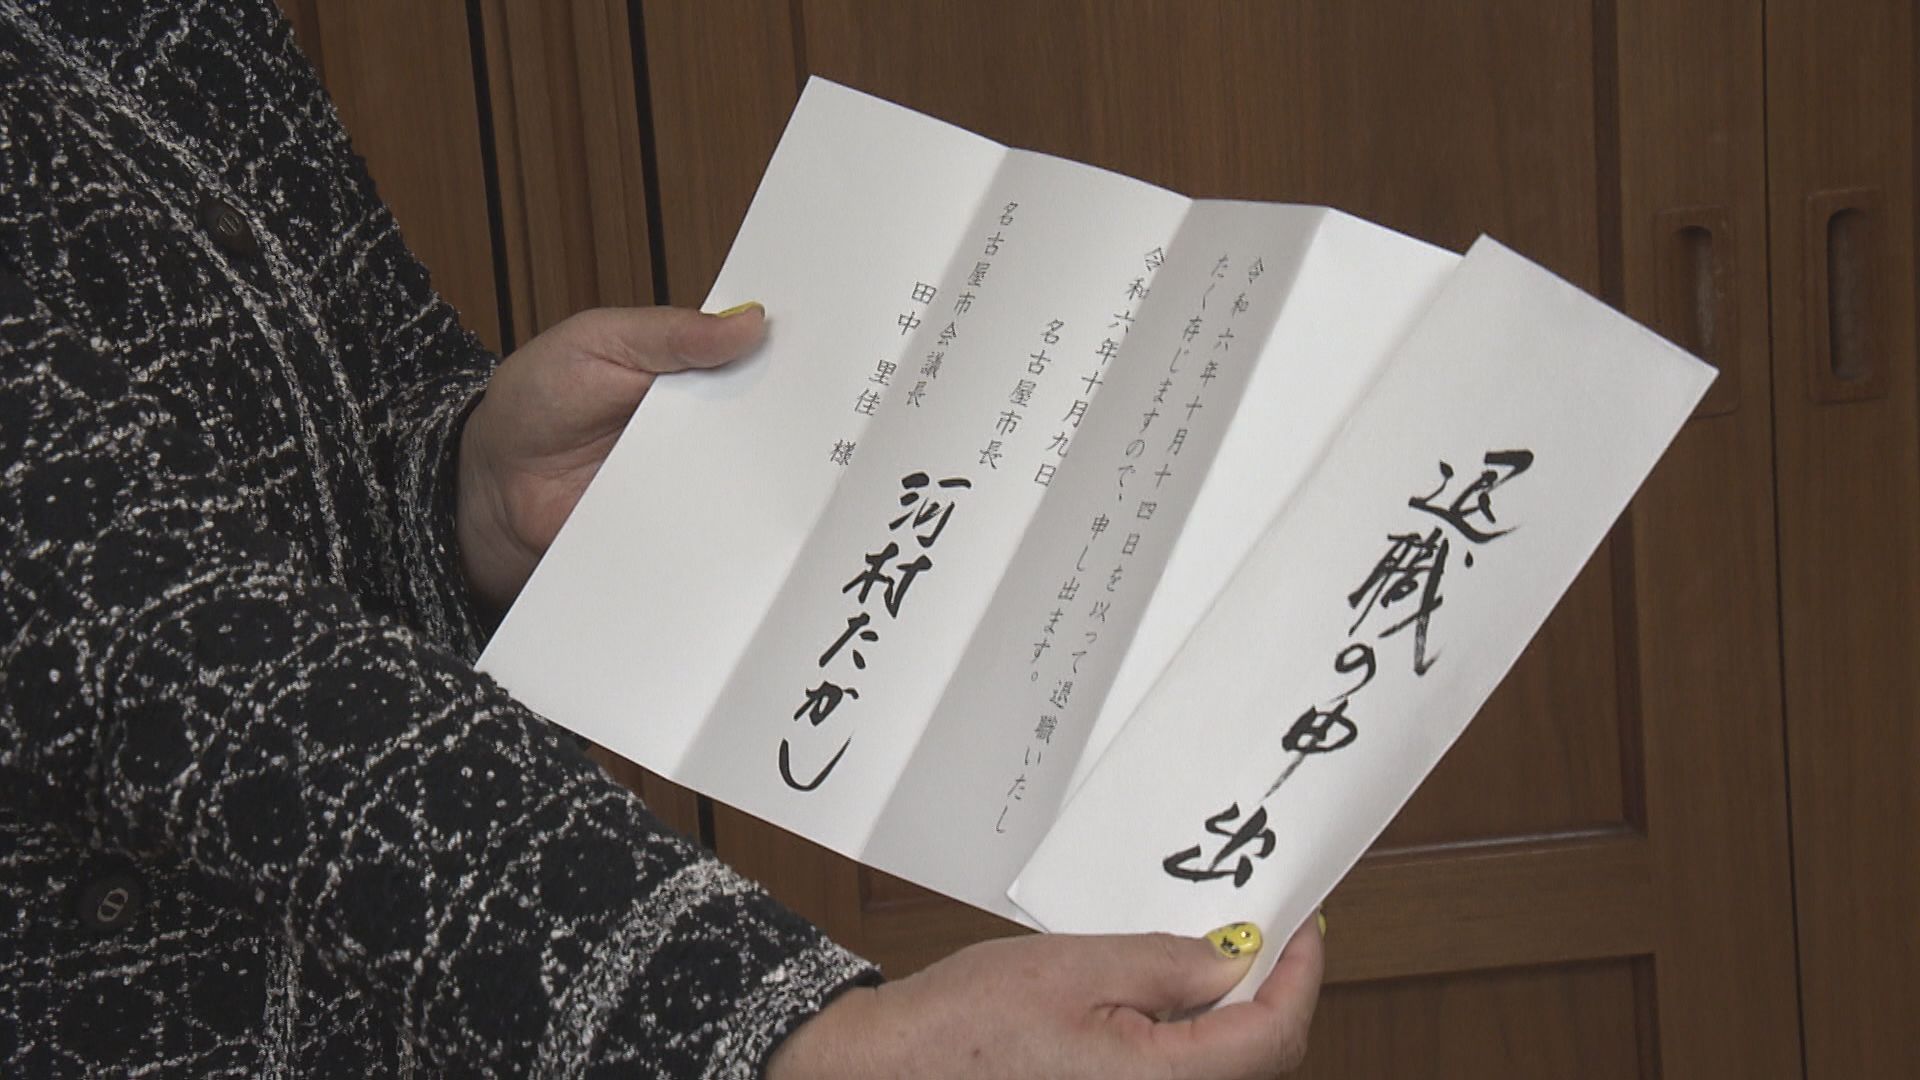 退職の申出
令和六年十月十四日を以って退職いたし
たく存じますので、申し出ます。
令和六年十月九日
名古屋市長
河村たかし
名古屋市会議長
田中 里佳 様